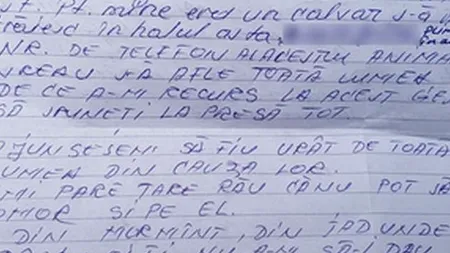 Pt. mine era un calvar s-ă
trăiesc în halul asta
NR. DE TELEFON ALACESTUI ANIMA
VREAU SĂ AFLE TOATĂ LUMEA
DE CE A-MI RECURS LA ACEST GES
SĂ SPUNEȚI LA PRESĂ TOT.
AJUNSESEMI SĂ FIU URÂT DE TOATĂ
LUMEA DIN CAUZA LOR.
MI PARE TARE RĂU CĂNU POT SĂ
OMOR SI PE EL.
DIN MORMÎNT, DIN IAD, UNDE
NU A-MI SĂ-I DAU